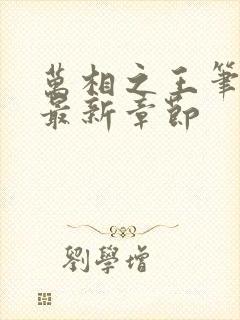 萬相之王筆
最新章節
劉學增